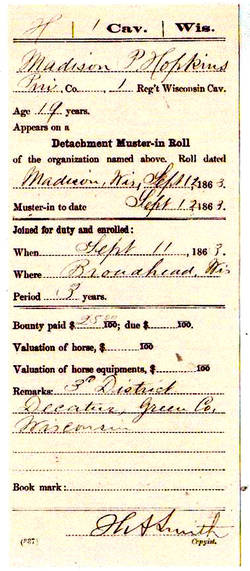 H | 1 | Cav. | Wis.
Madison P Hopkins
Priv, Co. , 1 Reg't Wisconsin Cav.
Age 19 years.
Appears on a
Detachment Muster-in Roll
of the organization named above. Roll dated
Madison, Wis, Sept 12 1863
Muster-in to date Sept 12 1863.
Joined for duty and enrolled:
When Sept 11, 1863.
Where Broadhead, Wis
Period 3 years.
Bounty paid $25 00/100; due $ 100.
Valuation of horse, $ 100
Valuation of horse equipments, $ 100
Remarks: 3d District
Decatur, Green Co,
Wisconsin
Book mark:
Smith
(337) Copyist.